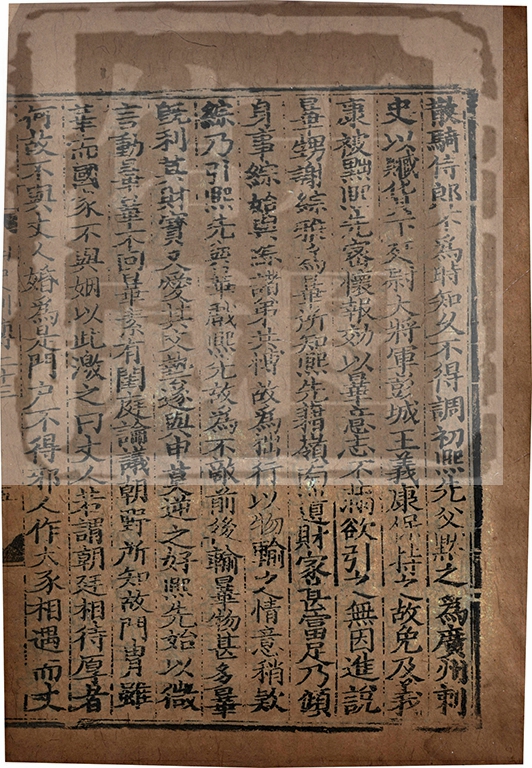 散騎侍郎不為時知久不得調初熙先父默之為廣州刺
史以贓貨下廷尉大將軍彭城王義康保持之故免及義
康被黜熙先密懷報効以曅意志不滿欲引之無因進說
曅甥謝綜雅為曅所知熙先藉嶺南遺財家甚富足乃傾
身事綜始與綜諸弟共博故為拙行以物輸之情意稍款
綜乃引熙先與曅戲熙先故為不敵前後輸曅物甚多曅
旣利其財寶又愛其文藝遂與申莫逆之好熙先始以微
言動曅曅不回曅素有閨庭論議朝野所知故門胄雖
華而國家不與姻以此激之曰丈人若謂朝廷相待厚者
何故不與丈人婚為是門戶不得邪人作犬豕相遇而丈